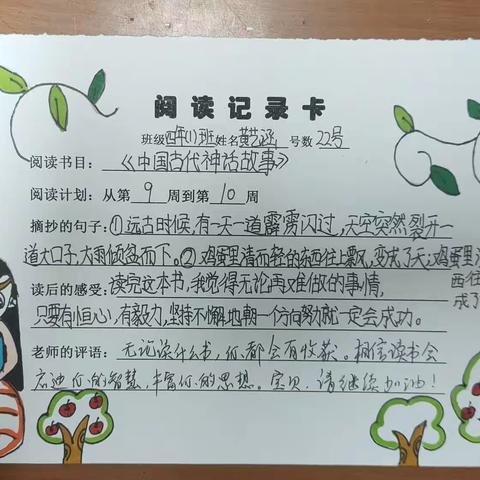 阅读记录卡
班级四年(1)班姓名黄艺涵 号数22号
阅读书目：《中国古代神话故事》
阅读计划：从第 9 周到第 10 周
摘抄的句子：①远古时候,有一天一道霹雳闪过,天空突然裂开一
道大口子,大雨倾盆而下。②鸡蛋里清而轻的东西往上飘,变成了天;鸡蛋里
西往
成了
读后的感受：读完这本书,我觉得无论再难做的事情,
只要有恒心,有毅力,坚持不懈地朝一个方向努力就一定会成功。
老师的评语：无论读什么书,你都会有收获。相信读书会
启迪你的智慧,丰富你的思想。宝贝,请继续加油!